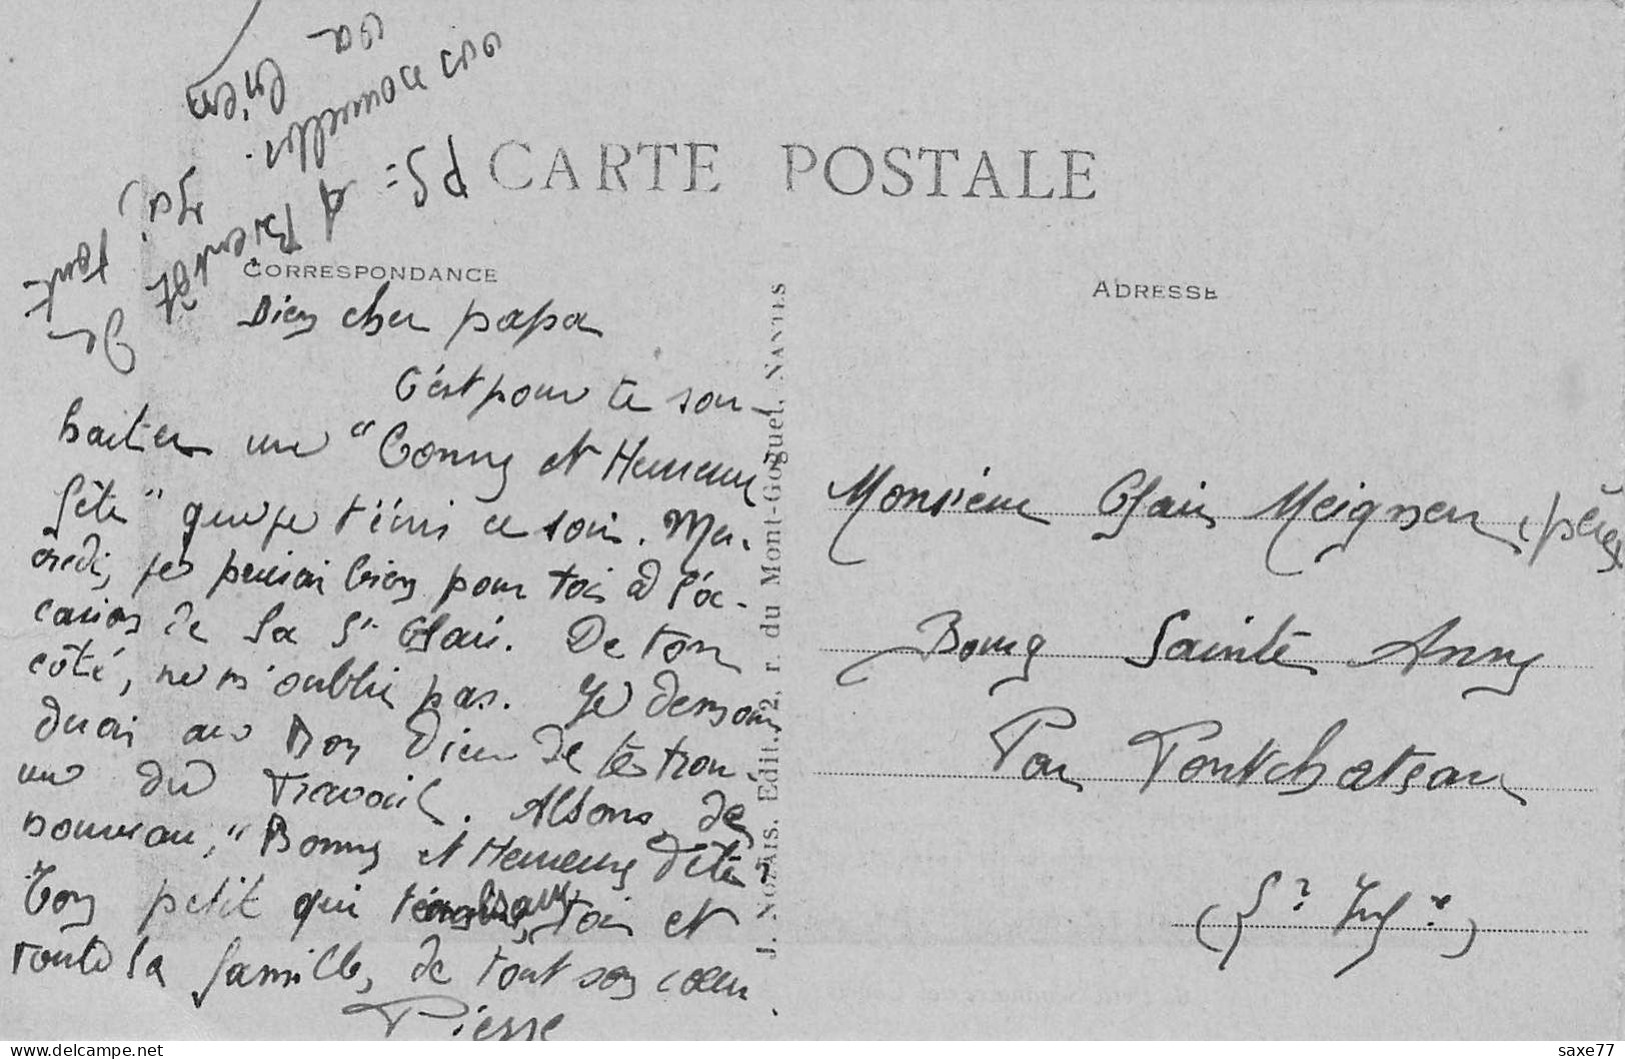 CARTE POSTALE
CORRESPONDANCE
ADRESSE
Bien cher papa
C'est pour te sou-
haiter une "Bonne et Heureuse
fête" que je t'écris ce soir. Mer-
credi, je pensai bien pour toi à l'oc-
casion de la St Clair. De ton
côté, ne m'oublie pas. Je deman
derai au Bon Dieu de te trou-
ver du travail. Allons, de
nouveau, "Bonne et Heureuse fête"
Ton petit qui t'embrasse, toi et
toute la famille, de tout son cœur
Pierre
PS = A Bientôt
vos nouvelles.
Ici, tout
va bien
J. NOZAIS. Edit., 2, r. du Mont-Goguet, NANTES
Monsieur Clair Meignen, père
Bourg Sainte Anne
Par Pontchateau
(Lre Infre)
delcampe.net
saxe77